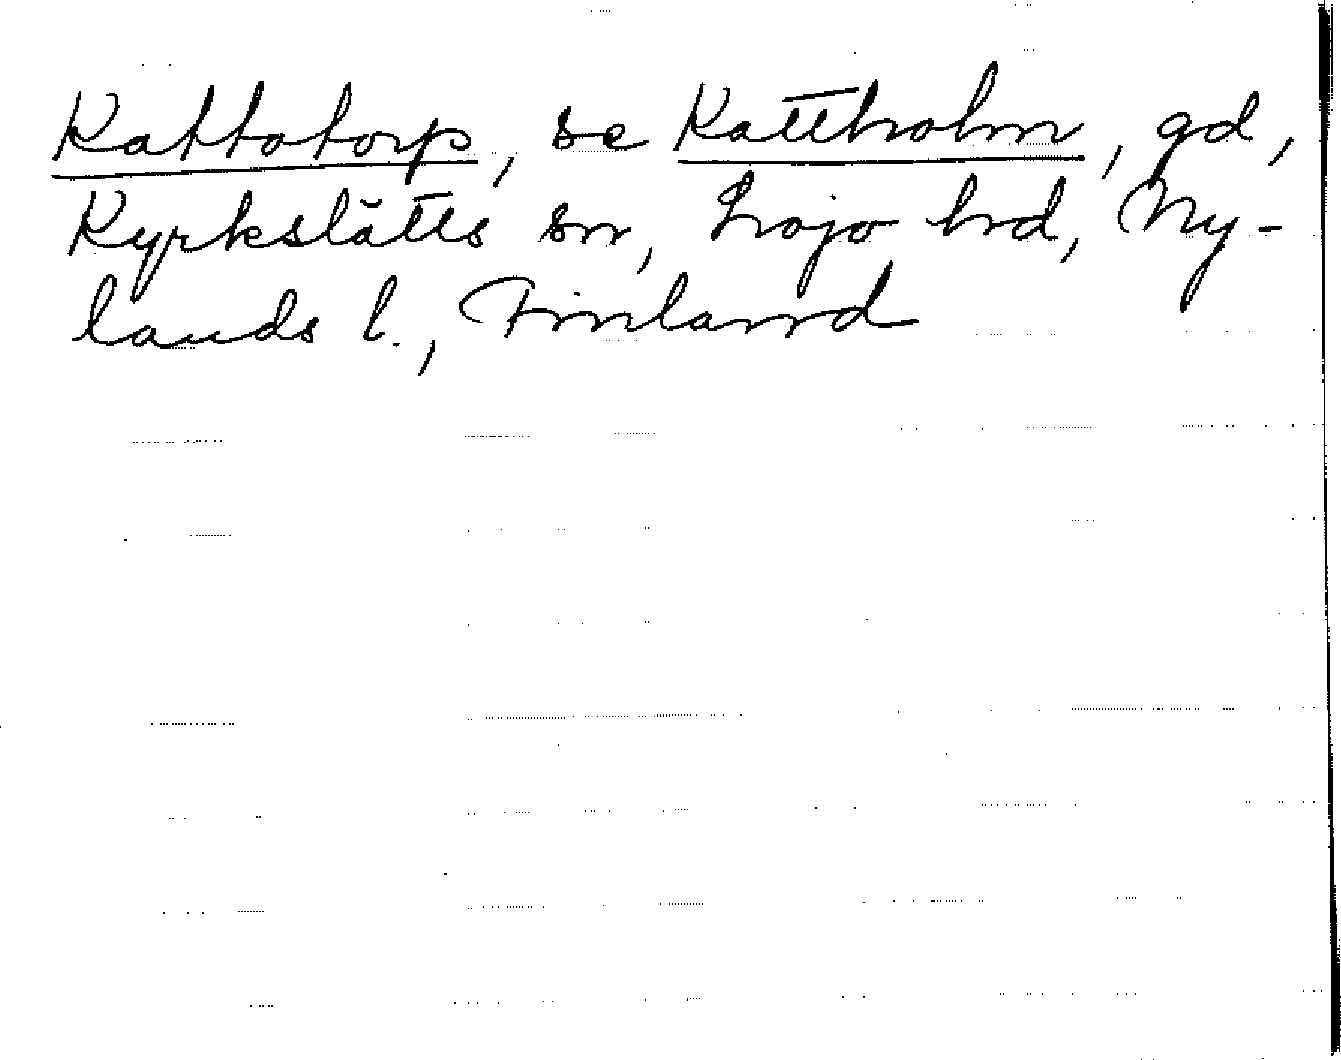 Kattatorp, se Kattholm, gd,
Kyrkslätts sn, Lojo hrd, Ny-
lands l., Finland